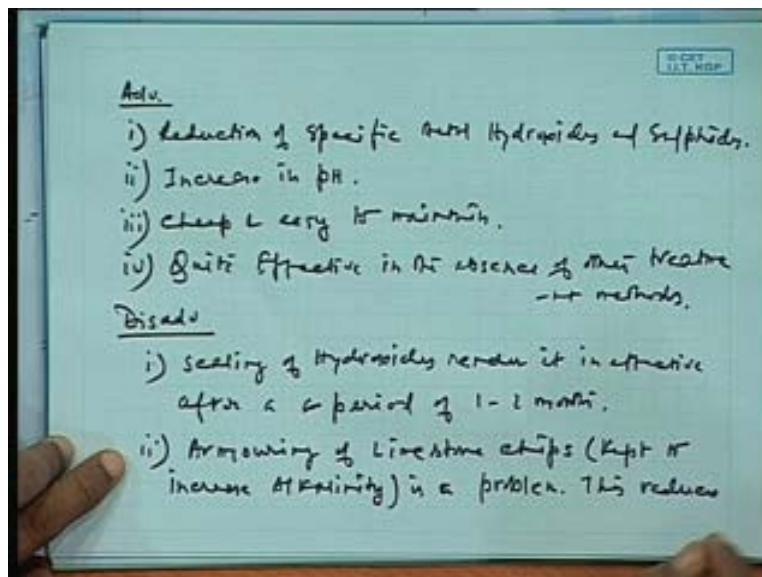 © CET
I.I.T. KGP
Adv.
i) Reduction of Specific Metal Hydroxides and Sulphides.
ii) Increase in pH.
iii) Cheap & easy to maintain.
iv) Quite Effective in the absence of other treatme
-nt methods.
Disadv
i) Scaling of Hydroxides render it ineffective
after a period of 1-2 month.
ii) Armouring of Limestone chips (Kept to
increase Alkalinity) is a problem. This reduces